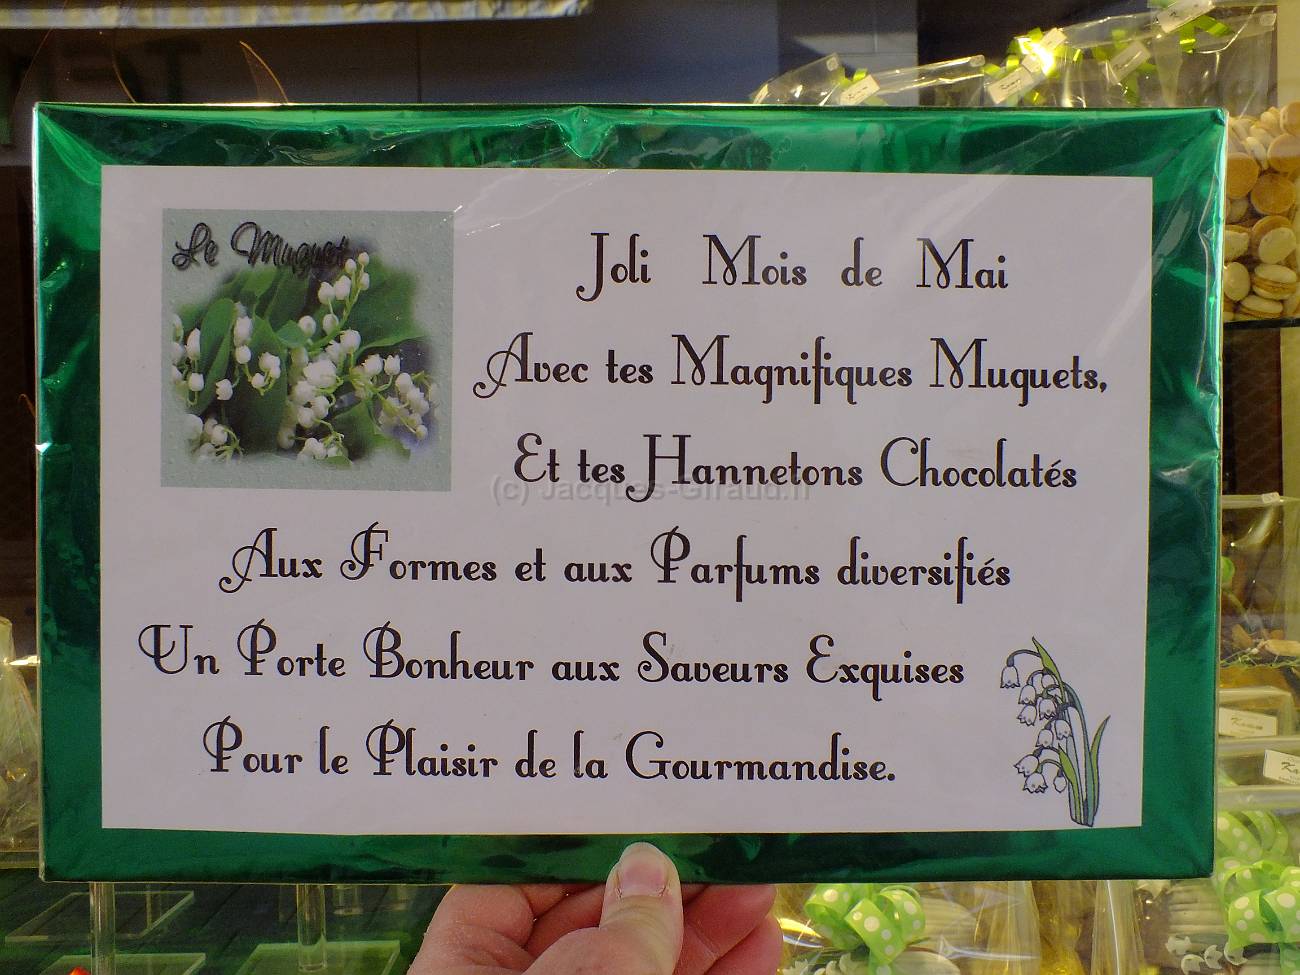 Le Muguet
Joli Mois de Mai
Avec tes Magnifiques Muguets,
Et tes Hannetons Chocolatés
(c) Jacques-Giraud.fr
Aux Formes et aux Parfums diversifiés
Un Porte Bonheur aux Saveurs Exquises
Pour le Plaisir de la Gourmandise.